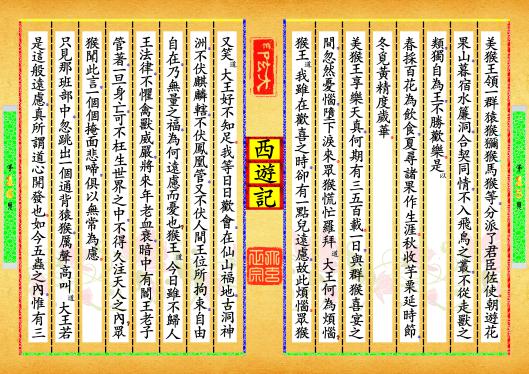 美猴王領一群猿猴獼猴馬猴等分派了君臣佐使朝遊花
果山暮宿水簾洞合契同情不入飛鳥之叢不從走獸之
類獨自為王不勝歡樂是以
春採百花為飲食夏尋諸果作生涯秋收芋栗延時節
冬覓黃精度歲華
美猴王享樂天真何期有三五百載一日與群猴喜宴之
間忽然憂惱墮下淚來眾猴慌忙羅拜道大王何為煩惱
猴王道我雖在歡喜之時卻有一點兒遠慮故此煩惱眾猴
西遊記
又笑道大王好不知足我等日日歡會在仙山福地古洞神
洲不伏麒麟轄不伏鳳凰管又不伏人間王位所拘束自由
自在乃無量之福為何遠慮而憂也猴王道今日雖不歸人
王法律不懼禽獸威嚴將來年老血衰暗中有閻王老子
管著一旦身亡可不枉生世界之中不得久注天人之內眾
猴聞此言一個個掩面悲啼俱以無常為慮
只見那班部中忽跳出一個通背猿猴厲聲高叫道大王若
是這般遠慮真所謂道心開發也如今五蟲之內惟有三